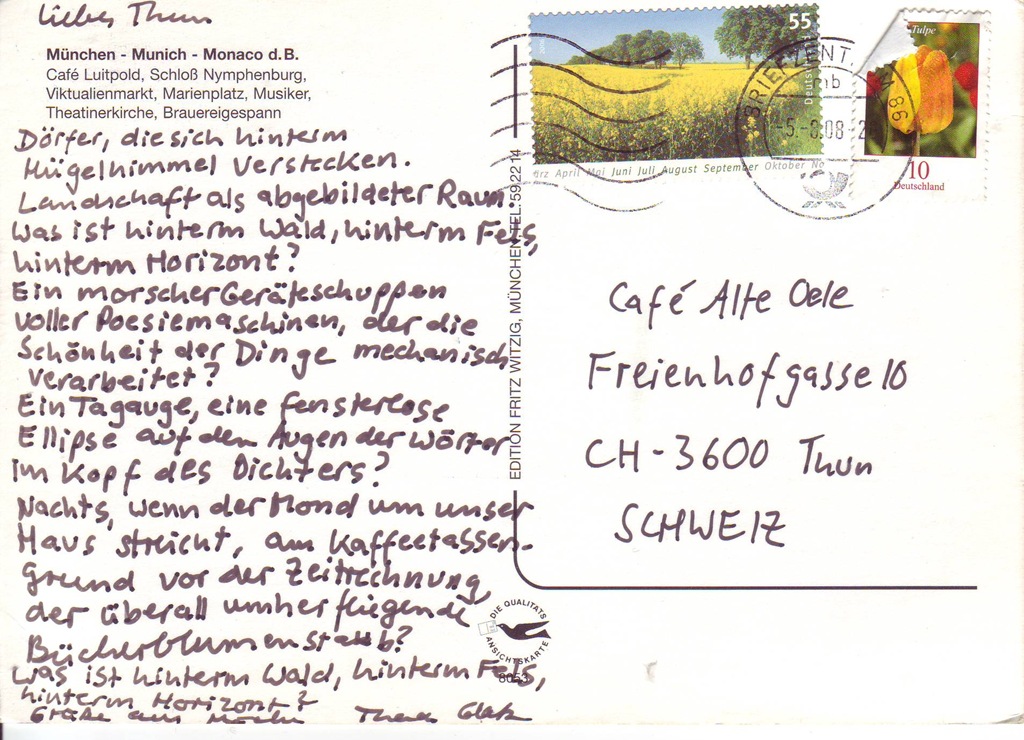 Liebes Thun
München - Munich - Monaco d.B.
Café Luitpold, Schloß Nymphenburg,
Viktualienmarkt, Marienplatz, Musiker,
Theatinerkirche, Brauereigespann
Dörfer, die sich hinterm
Hügelhimmel verstecken.
Landschaft als abgebildeter Raum.
Was ist hinterm Wald, hinterm Fels,
hinterm Horizont?
Ein morscher Geräteschuppen
voller Poesiemaschinen, der die
Schönheit der Dinge mechanisch
verarbeitet?
Ein Tagauge, eine fensterlose
Ellipse auf den Augen der Wörter
im Kopf des Dichters?
Nachts, wenn der Mond um unser
Haus streicht, am Kaffeetassen-
grund vor der Zeitrechnung,
der überall umherfliegende
Bücherblumenstaub?
Was ist hinterm Wald, hinterm Fels,
hinterm Horizont?
Grüße aus
EDITION FRITZ WITZIG, MÜNCHEN, TEL. 59 22 14
DIE QUALITÄTS
ANSICHTSKARTE
8053
55
Deutschland
März April Mai Juni Juli August September Oktober No
BRIEFZENTRUM 86
mb
-5.-8.08-2
Tulpe
10
Deutschland
Café Alte Oele
Freienhofgasse 10
CH-3600 Thun
SCHWEIZ